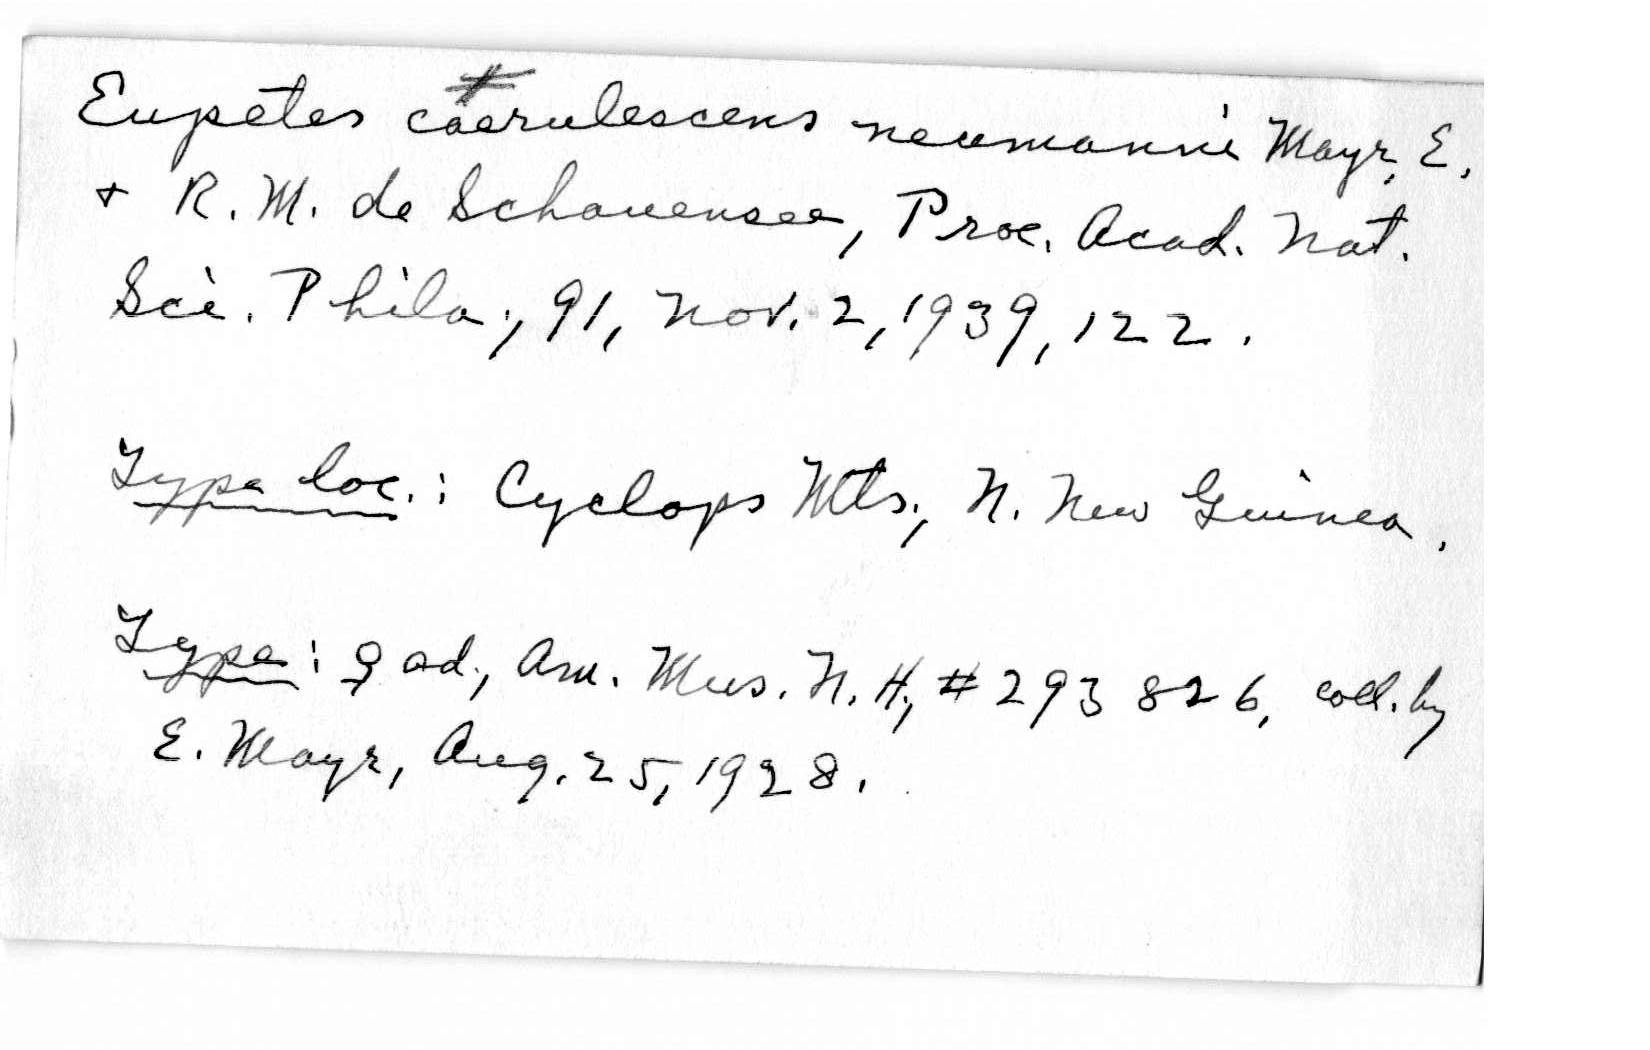 Eupetes caerulescens neumanni Mayr, E.
+ R. M. de Schauensee, Proc. Acad. Nat.
Sci. Phila., 91, Nov. 2, 1939, 122.
Type loc.: Cyclops Mts., N. New Guinea.
Type: ♀ ad., Am. Mus. N. H., # 293826, coll. by
E. Mayr, Aug. 25, 1928.